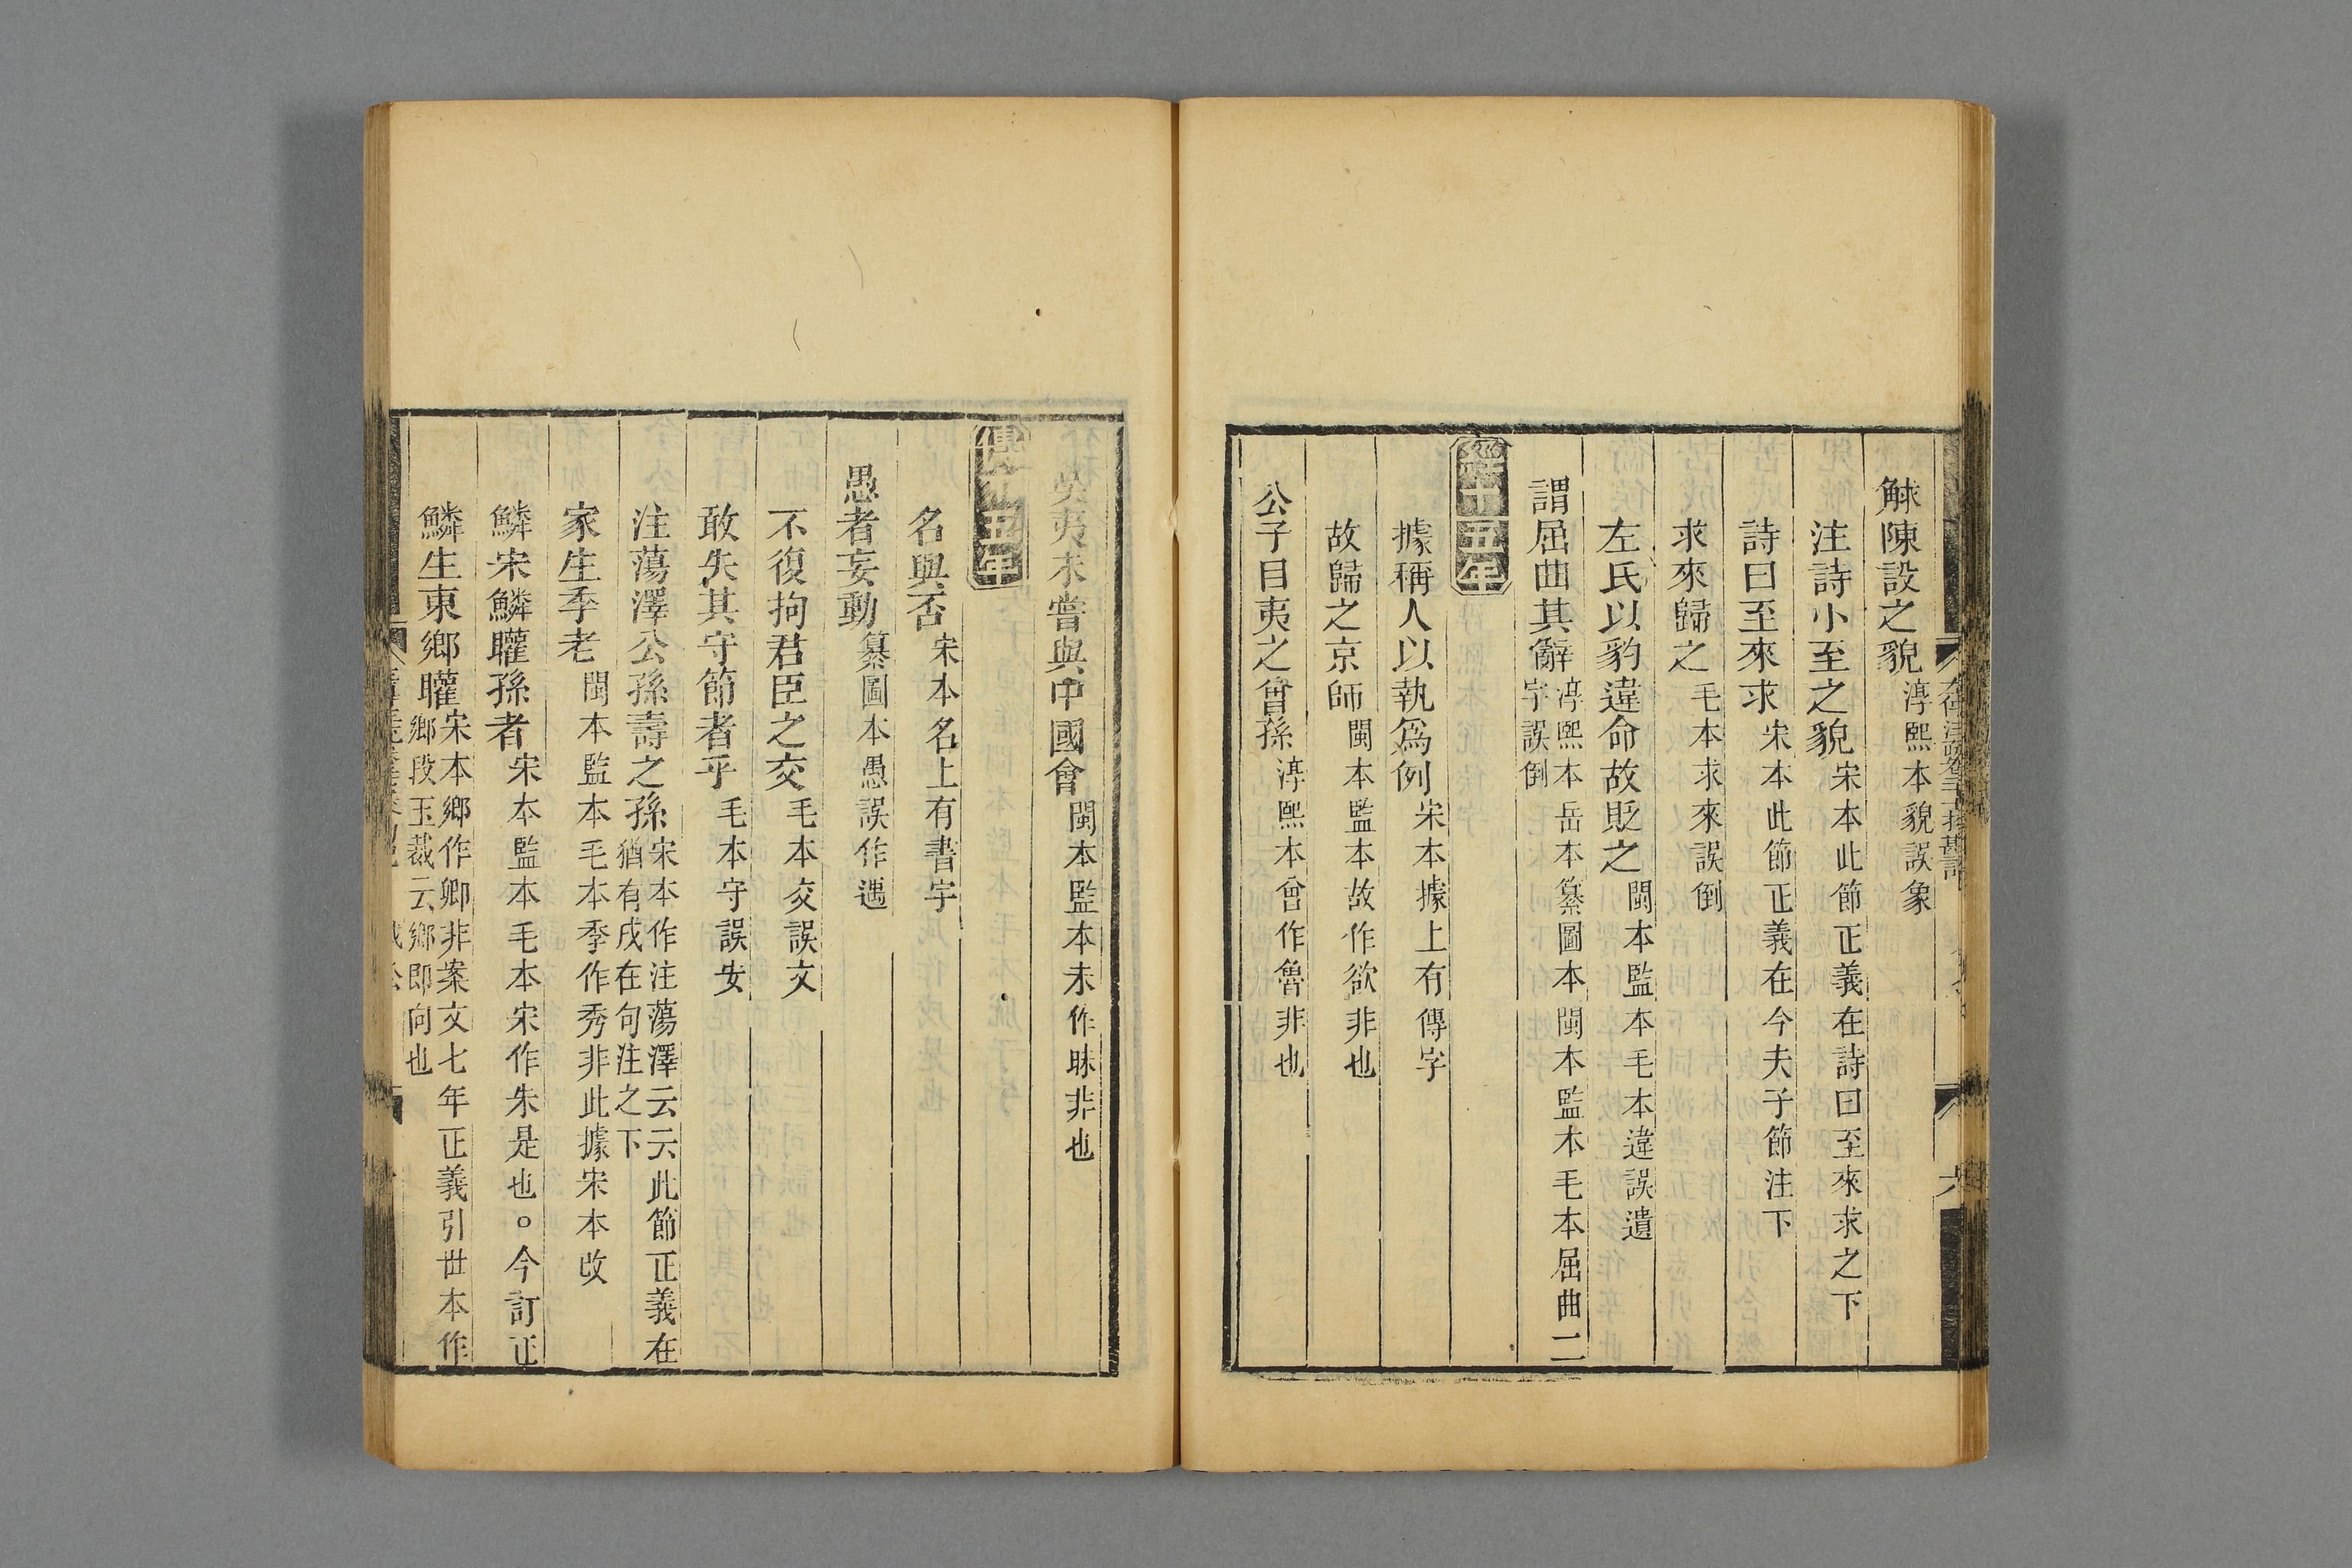 觩陳設之貌淳熙本貌誤象
注詩小至之貌宋本此節正義在詩曰至來求之下
詩曰至來求宋本此節正義在今夫子節注下
求來歸之毛本求來誤倒
左氏以豹違命故貶之閩本監本毛本違誤遺
謂屈曲其辭淳熙本岳本纂圖本閩本監本毛本屈曲二
字誤倒
經十五年
據稱人以執爲例宋本據上有傳字
故歸之京師閩本監本故作欲非也
公子目夷之曾孫淳熙本曾作魯非也
吳夷未嘗與中國會閩本監本未作昧非也
傳十五年
名與否宋本名上有書字
愚者妄動纂圖本愚誤作遇
不復拘君臣之交毛本交誤文
敢失其守節者乎毛本守誤安
注蕩澤公孫壽之孫宋本作注蕩澤云云此節正義在
猶有戌在句注之下
家生季老閩本監本毛本季作秀非此據宋本改
鱗宋鱗矔孫者宋本監本毛本宋作朱是也○今訂正
鱗生東鄉矔宋本鄉作卿非案文七年正義引世本作
鄉段玉裁云鄉即向也